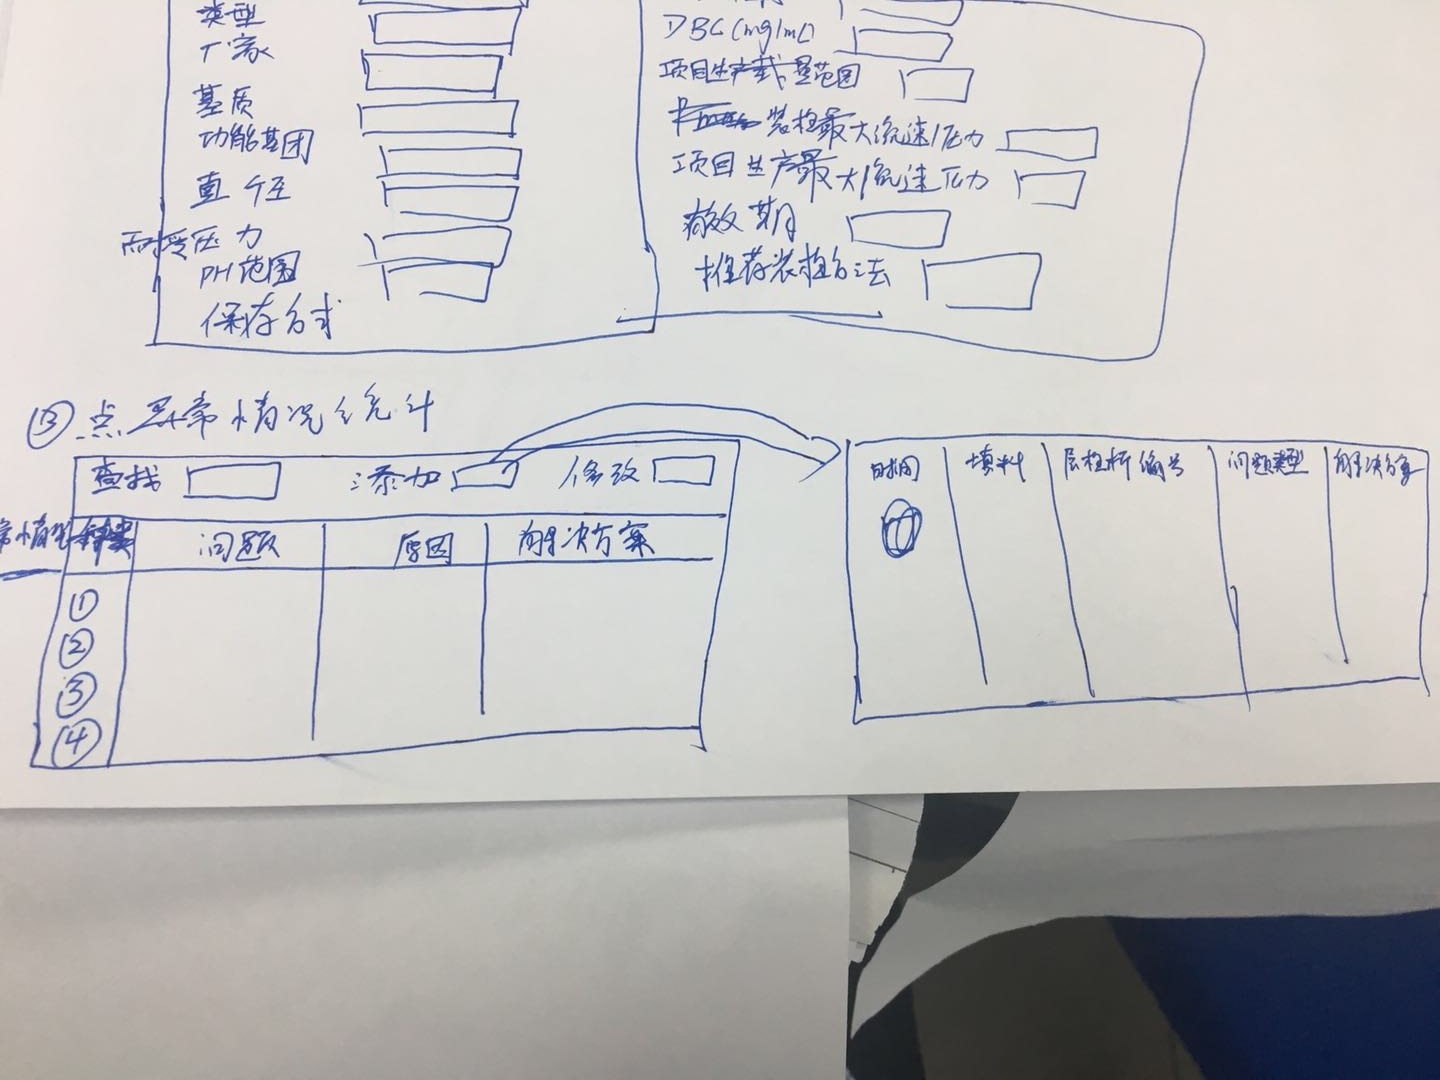 类型
厂家
基质
功能基团
直径
耐受压力
PH范围
保存方式
DBC(mg/mL)
项目生产载量范围
装柱最大流速/压力
项目生产最大流速压力
有效期
推荐装柱方法
③ 点异常情况统计
查找 添加 修改
问题 原因 解决方案
①
②
③
④
时间 填料 层柱析编号 问题类型 解决方案